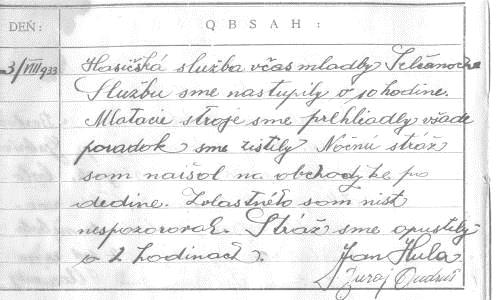 DEŇ: OBSAH:
3/VIII 933 Hasičská služba včas mladby
Službu sme nastupily o 10 hodine.
Mlatacie stroje sme prehliadly všade
poradok sme zistily Nočnú stráž
som naišol na obchodzke po
dedine. Zvlastného som nist
nespozoroval. Stráž sme opustily
o 2 hodinach. Jan Hula
Juraj